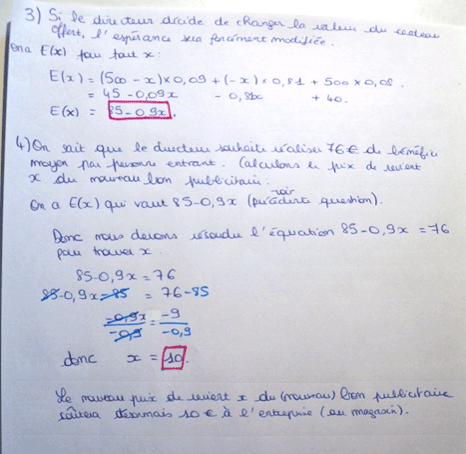 3) Si le directeur décide de changer la valeur du cadeau
offert, l'espérance sera forcément modifiée.
On a E(x) pour tout x :
E(x) = (500 - x) x 0,09 + (-x) x 0,81 + 500 x 0,08.
= 45 - 0,09x - 0,81x + 40.
E(x) = 85 - 0,9x.
4) On sait que le directeur souhaite réaliser 76€ de bénéfice
moyen par personne entrant. Calculons le prix de revient
x du nouveau bon publicitaire.
On a E(x) qui vaut 85-0,9x (voir précédente question).
Donc nous devons résoudre l'équation 85-0,9x = 76
pour trouver x.
85-0,9x = 76
85-0,9x-85 = 76-85
-0,9x/-0,9 = -9/-0,9
donc x = 10.
Le nouveau prix de revient x du (nouveau) bon publicitaire
coûtera désormais 10 € à l'entreprise (au magasin).